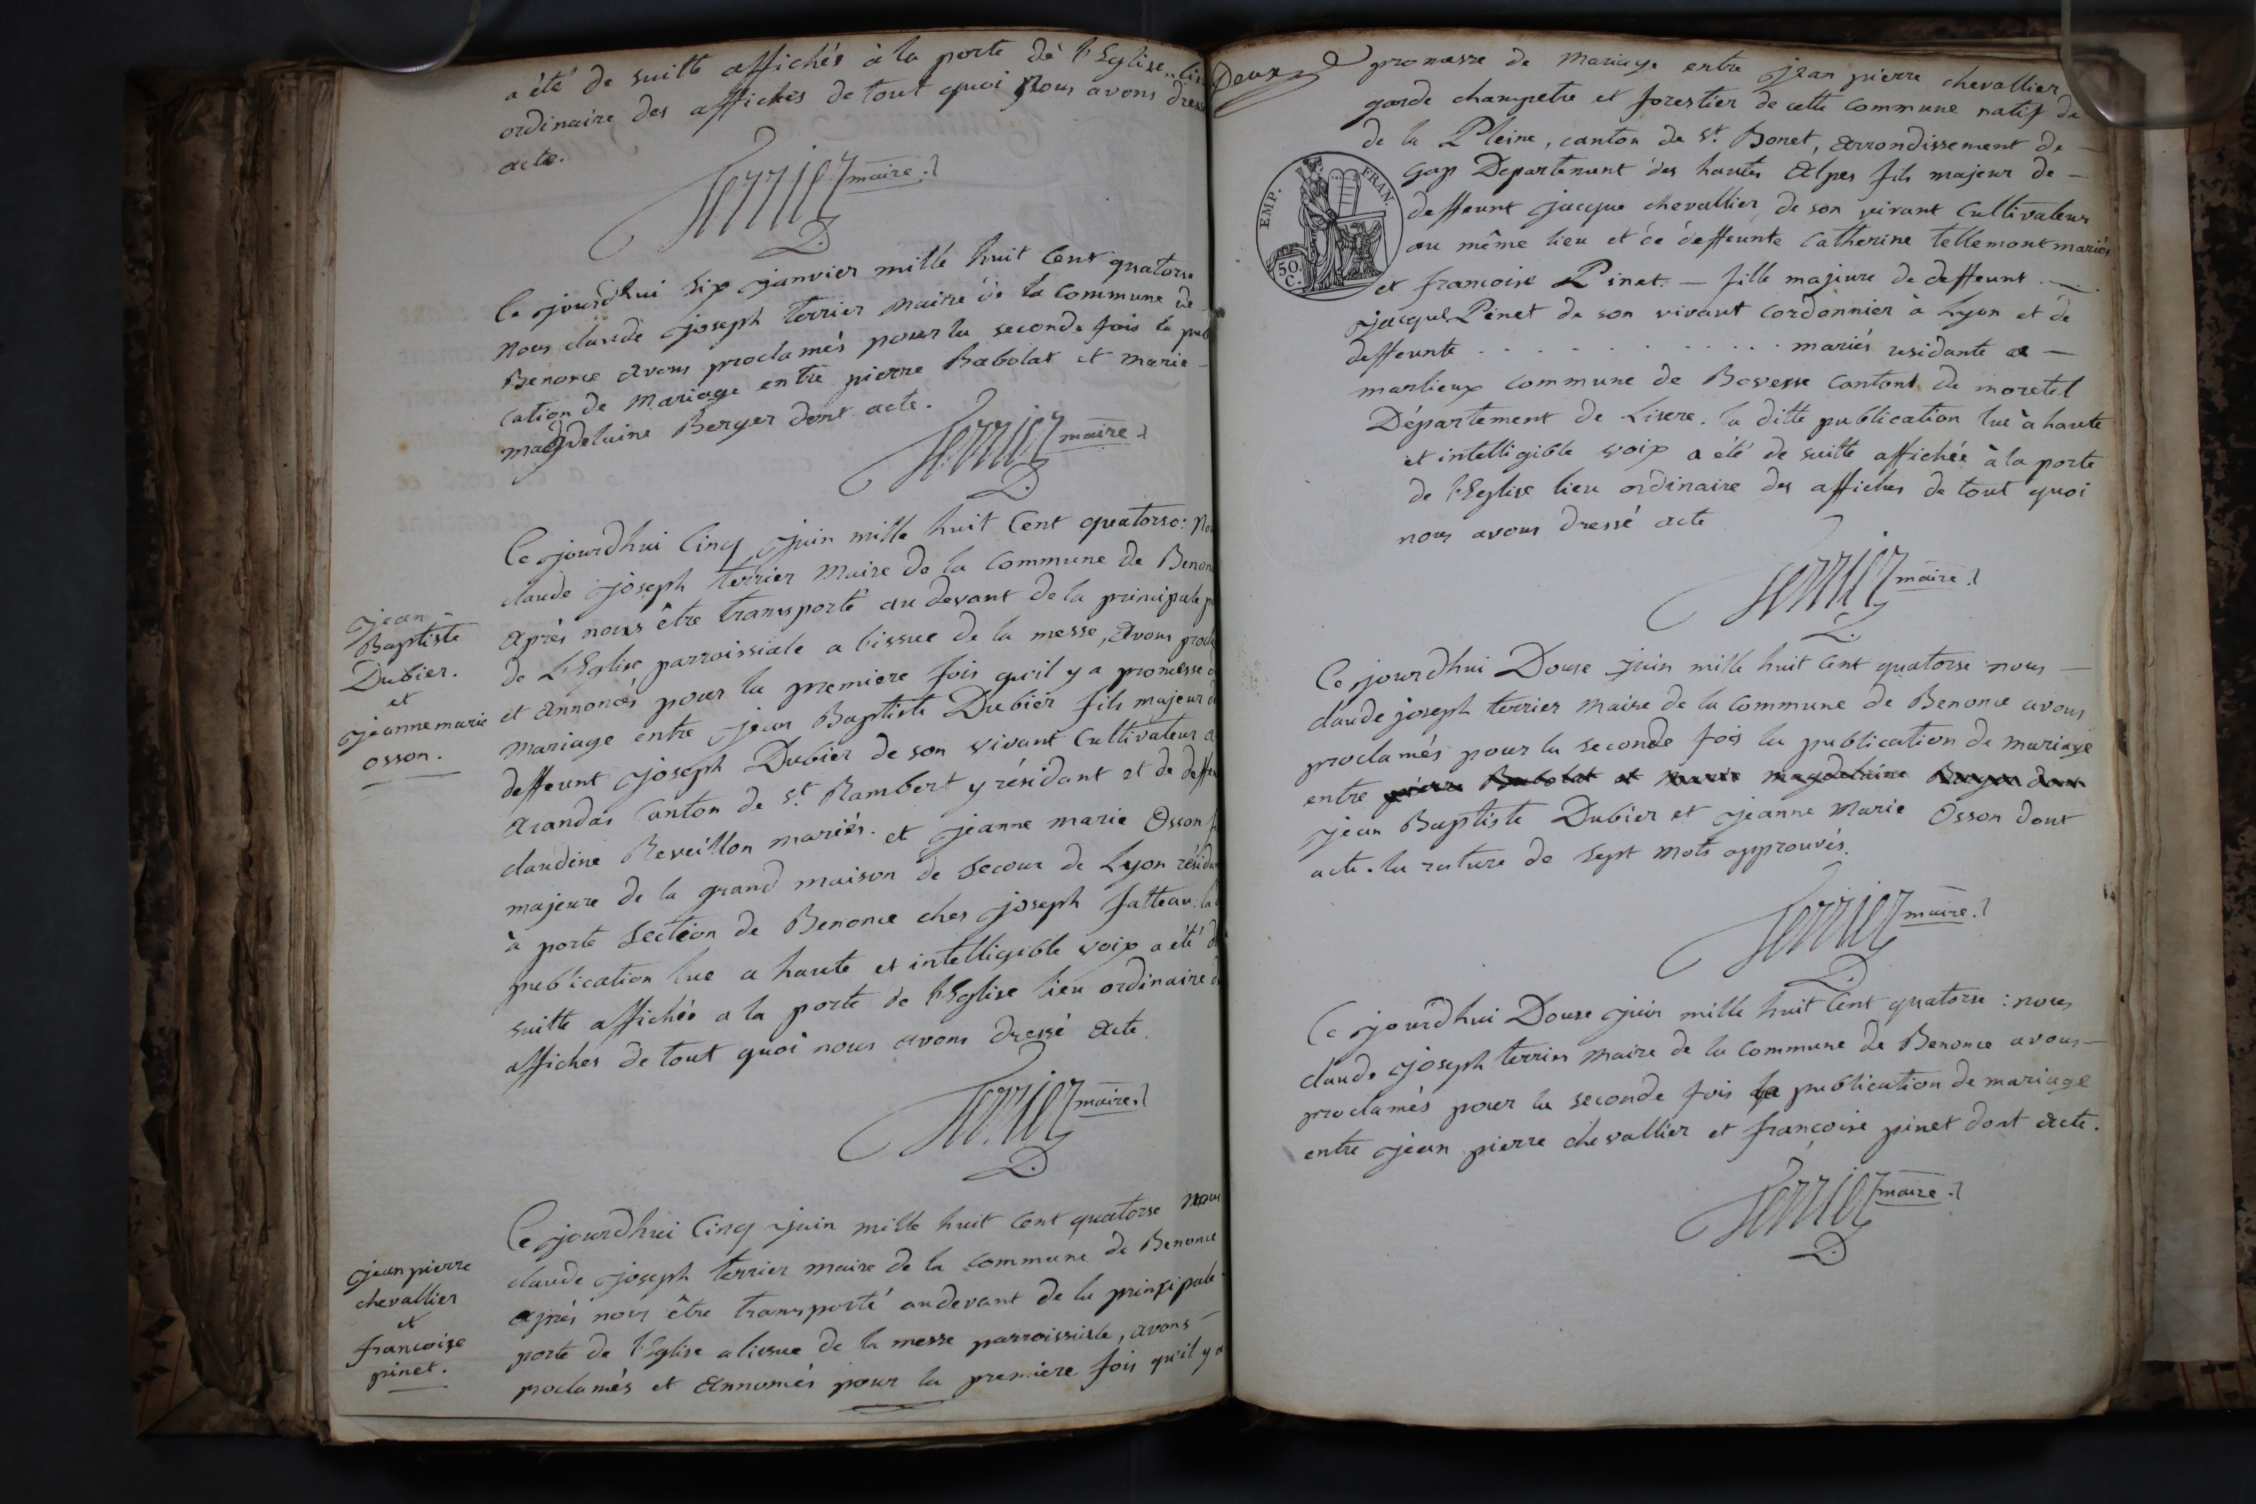 a été de suitte affichés à la porte de l'Eglise
ordinaire des affiches de tout quoi Nous avons
acte.
Terrier maire
Ce jourdhui Six janvier mille huit Cent quatorse
nous claude joseph terrier Maire de la Commune de
Benonce avons proclamés pour la seconde fois la publi
cation de Mariage entre pierre Babolat et marie
magdelaine Berger dont acte.
Terrier maire
Ce jourdhui Cinq juin mille huit Cent quatorse:
claude joseph terrier Maire de la Commune de
Après nous être transporté au devant de la principale
de L'Eglise parroissiale a l'issue de la messe, Avons
et Annoncés pour la premiere fois qu'il y a promesse
mariage entre jean Baptiste Dubier fils majeur
deffeunt joseph Dubier de son vivant Cultivateur
Arandas Canton de St Rambert y résidant et de
claudine Reveillon mariés. et jeanne marie Osson
majeure de la grand maison de Secour de Lyon
à porte Section de Benonce ches joseph fatteau
publication lue a haute et intelligible voix a été
suitte affichée a la porte de l'Eglise lieu ordinaire
affiches de tout quoi nous avons dressé Acte.
Terrier maire
jean
Baptiste
Dubier.
et
jeanne marie
osson.
Ce jourdhui Cinq juin mille huit Cent quatorse nous
claude joseph terrier maire de la Commune de Benonce
après nous être transporté audevant de la principale
porte de l'Eglise a lissue de la messe parroissiale, avons
proclamés et Annoncés pour la premiere fois qu'il y a
jean pierre
chevallier
et
francoise
pinet.
Deux
promesse de Mariage entre jean pierre chevallier
garde champetre et forestier de cette Commune natif de
de la Pleine, canton de St. Bonet, Arrondissement de
Gap Departement des hautes Alpes fils majeur de
deffeunt jacque chevallier, de son vivant Cultivateur
au même lieu et de deffeunte Catherine tellemont mariés
et francoise Pinet. — fille majeure de deffeunt
jacque Pinet de son vivant Cordonnier à Lyon et de
deffeunte . . . . . . . . . . . mariés residante a
manlieux commune de Bovesse Canton de moretel
Département de Lisere. la ditte publication lue à haute
et intelligible voix a été de suitte affichée à la porte
de l'Eglise lieu ordinaire des affiches de tout quoi
nous avons dressé acte
EMP. FRAN.
50. C.
Terrier maire
Ce jourdhui Douse juin mille huit Cent quatorse nous
claude joseph terrier Maire de la Commune de Benonce avons
proclamés pour la seconde fois la publication de mariage
entre pierre Babolat et Marie magdelaine Berger dont
jean Baptiste Dubier et jeanne Marie Osson dont
acte. la rature de Sept mots approuvés.
Terrier maire
Ce jourdhui Douse juin mille huit Cent quatorse: nous
claude joseph terrier Maire de la Commune de Benonce avons
proclamés pour la seconde fois la publication de mariage
entre jean pierre chevallier et françoise pinet dont Acte.
Terrier maire